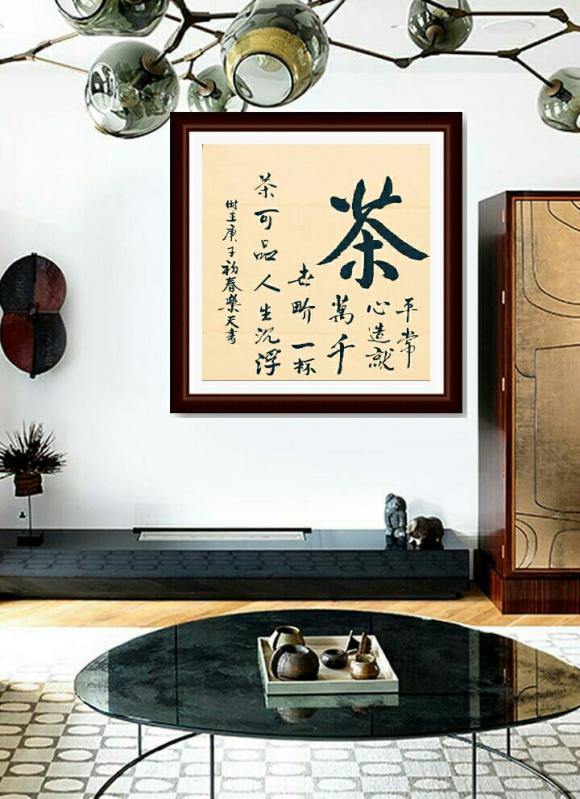 茶
平常
心造就
萬千
世畍一杯
茶可品人生沉浮
时在庚子初春樂天書